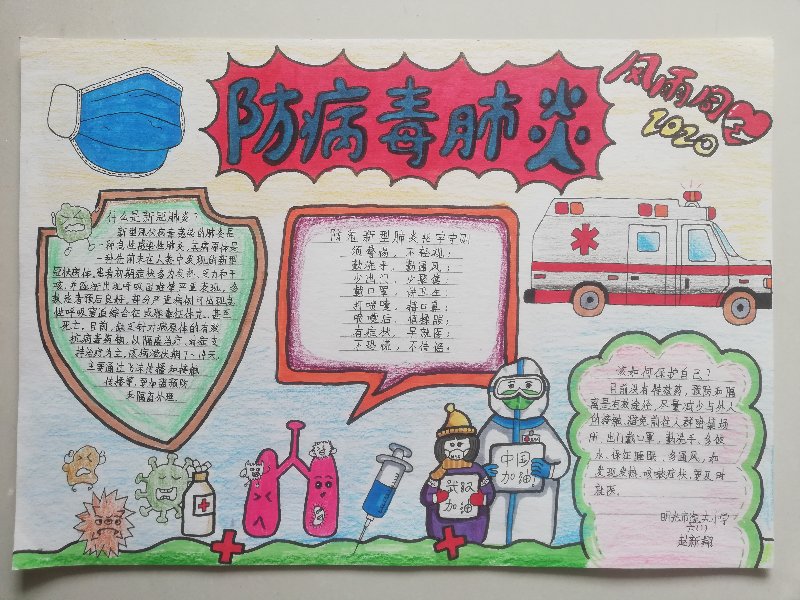 防病毒肺炎
风雨同
2020
什么是新冠肺炎？
新型冠状病毒感染的肺炎是
一种急性感染性肺炎,其病原体是
一种先前未在人类中发现的新型
冠状病毒,患者初期症状多为发热、乏力和干
咳,并逐渐出现呼吸困难等严重表现。多
数患者预后良好,部分严重病例可出现急
性呼吸窘迫综合征或脓毒症休克,甚至
死亡。目前,缺乏针对病原体的有效
抗病毒药物,以隔离治疗、对症支
持治疗为主,
主要通过飞沫传播和接触
传播等,要加强预防
和隔离处理
防范新型肺炎
须警惕，不轻视；
勤洗手，勤通风；
少出门，少聚集；
戴口罩，讲卫生；
打喷嚏，捂口鼻；
喷嚏后，慎揉眼；
有症状，早就医；
不恐慌，不传谣。
该如何保护自己？
目前没有特效药，预防和隔
离是有效途径，尽量减少与外人
的接触，避免前往人群密集场
所，出门戴口罩，勤洗手，多饮
水，保证睡眠，多通风，如
发现发热、咳嗽症状，要及时
就医。
武汉
加油
中国
加油!
明光市
赵新翔